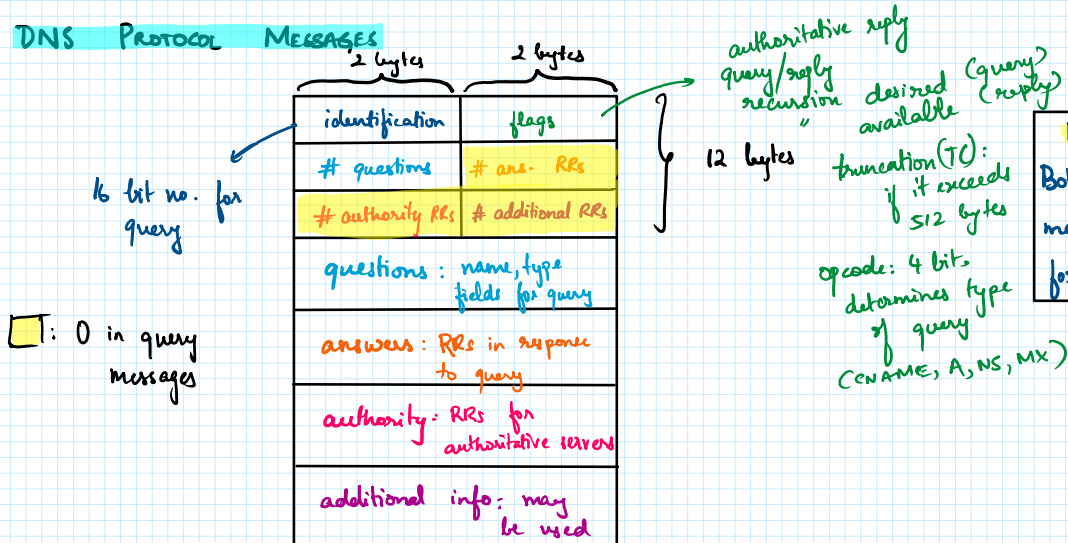 DNS PROTOCOL MESSAGES
2 bytes
2 bytes
identification
flags
# questions
# ans. RRs
# authority RRs
# additional RRs
12 bytes
16 bit no. for
query
questions: name, type
fields for query
answers: RRs in response
to query
authority: RRs for
authoritative servers
additional info: may
be used
: 0 in query
messages
authoritative reply
query/reply
recursion desired (query)
" available (reply)
truncation (TC):
if it exceeds
512 bytes
opcode: 4 bit,
determines type
of query
(CNAME, A, NS, MX)